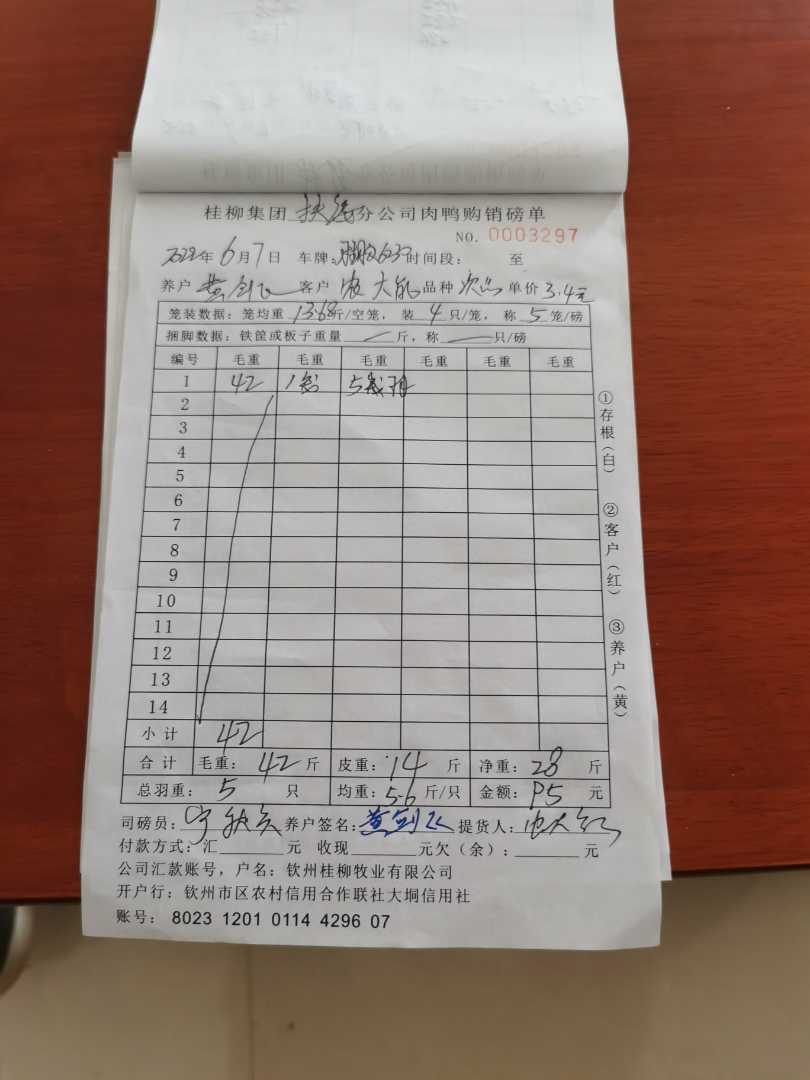 桂柳集团 扶绥分公司肉鸭购销磅单
NO. 0003297
2022年6月7日 车牌: 时间段: 至
养户 黄剑飞 客户 农大 品种 次品 单价 3.4元
笼装数据:笼均重 13.68斤/空笼,装 4 只/笼,称 5 笼/磅
捆脚数据:铁筐或板子重量 斤,称 只/磅
编号 毛重 毛重 毛重 毛重 毛重 毛重
1 42 1笼 5残鸭
2
3
4
5
6
7
8
9
10
11
12
13
14
小计 42
合计 毛重:42斤 皮重:14斤 净重:28斤
总羽重:5只 均重:5.6斤/只 金额:95元
司磅员: 养户签名:黄剑飞 提货人:
付款方式:汇 元 收现 元欠(余): 元
公司汇款账号,户名:钦州桂柳牧业有限公司
开户行:钦州市区农村信用合作联社大垌信用社
账号:8023 1201 0114 4296 07
①存根(白)
②客户(红)
③养户(黄)